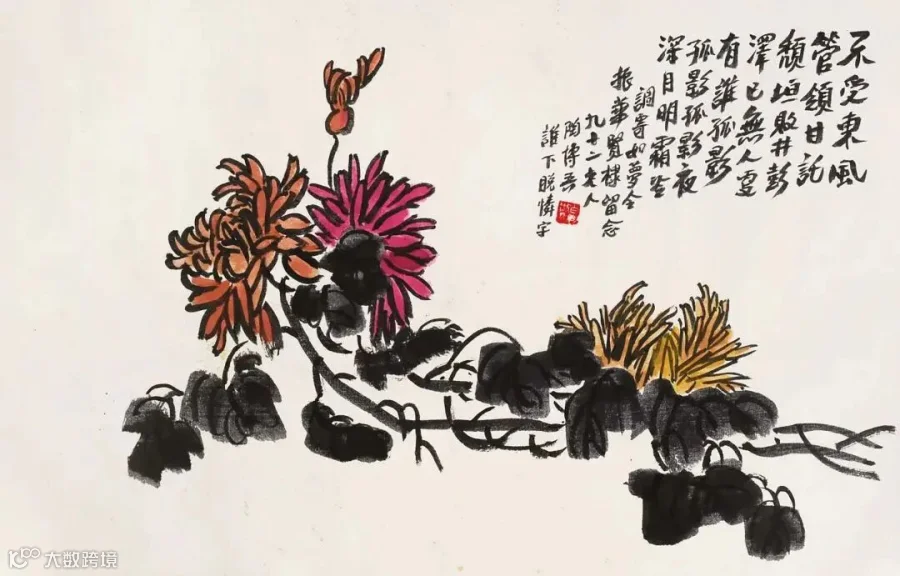 不受東風
管領甘託
頹垣敗井彭
澤已無人更
有誰孤影
孤影孤影夜
深月明霜冷
調寄如夢令
振華賢棣留念
九十二老人
陶博吾
誰下脫憐字
大数跨境